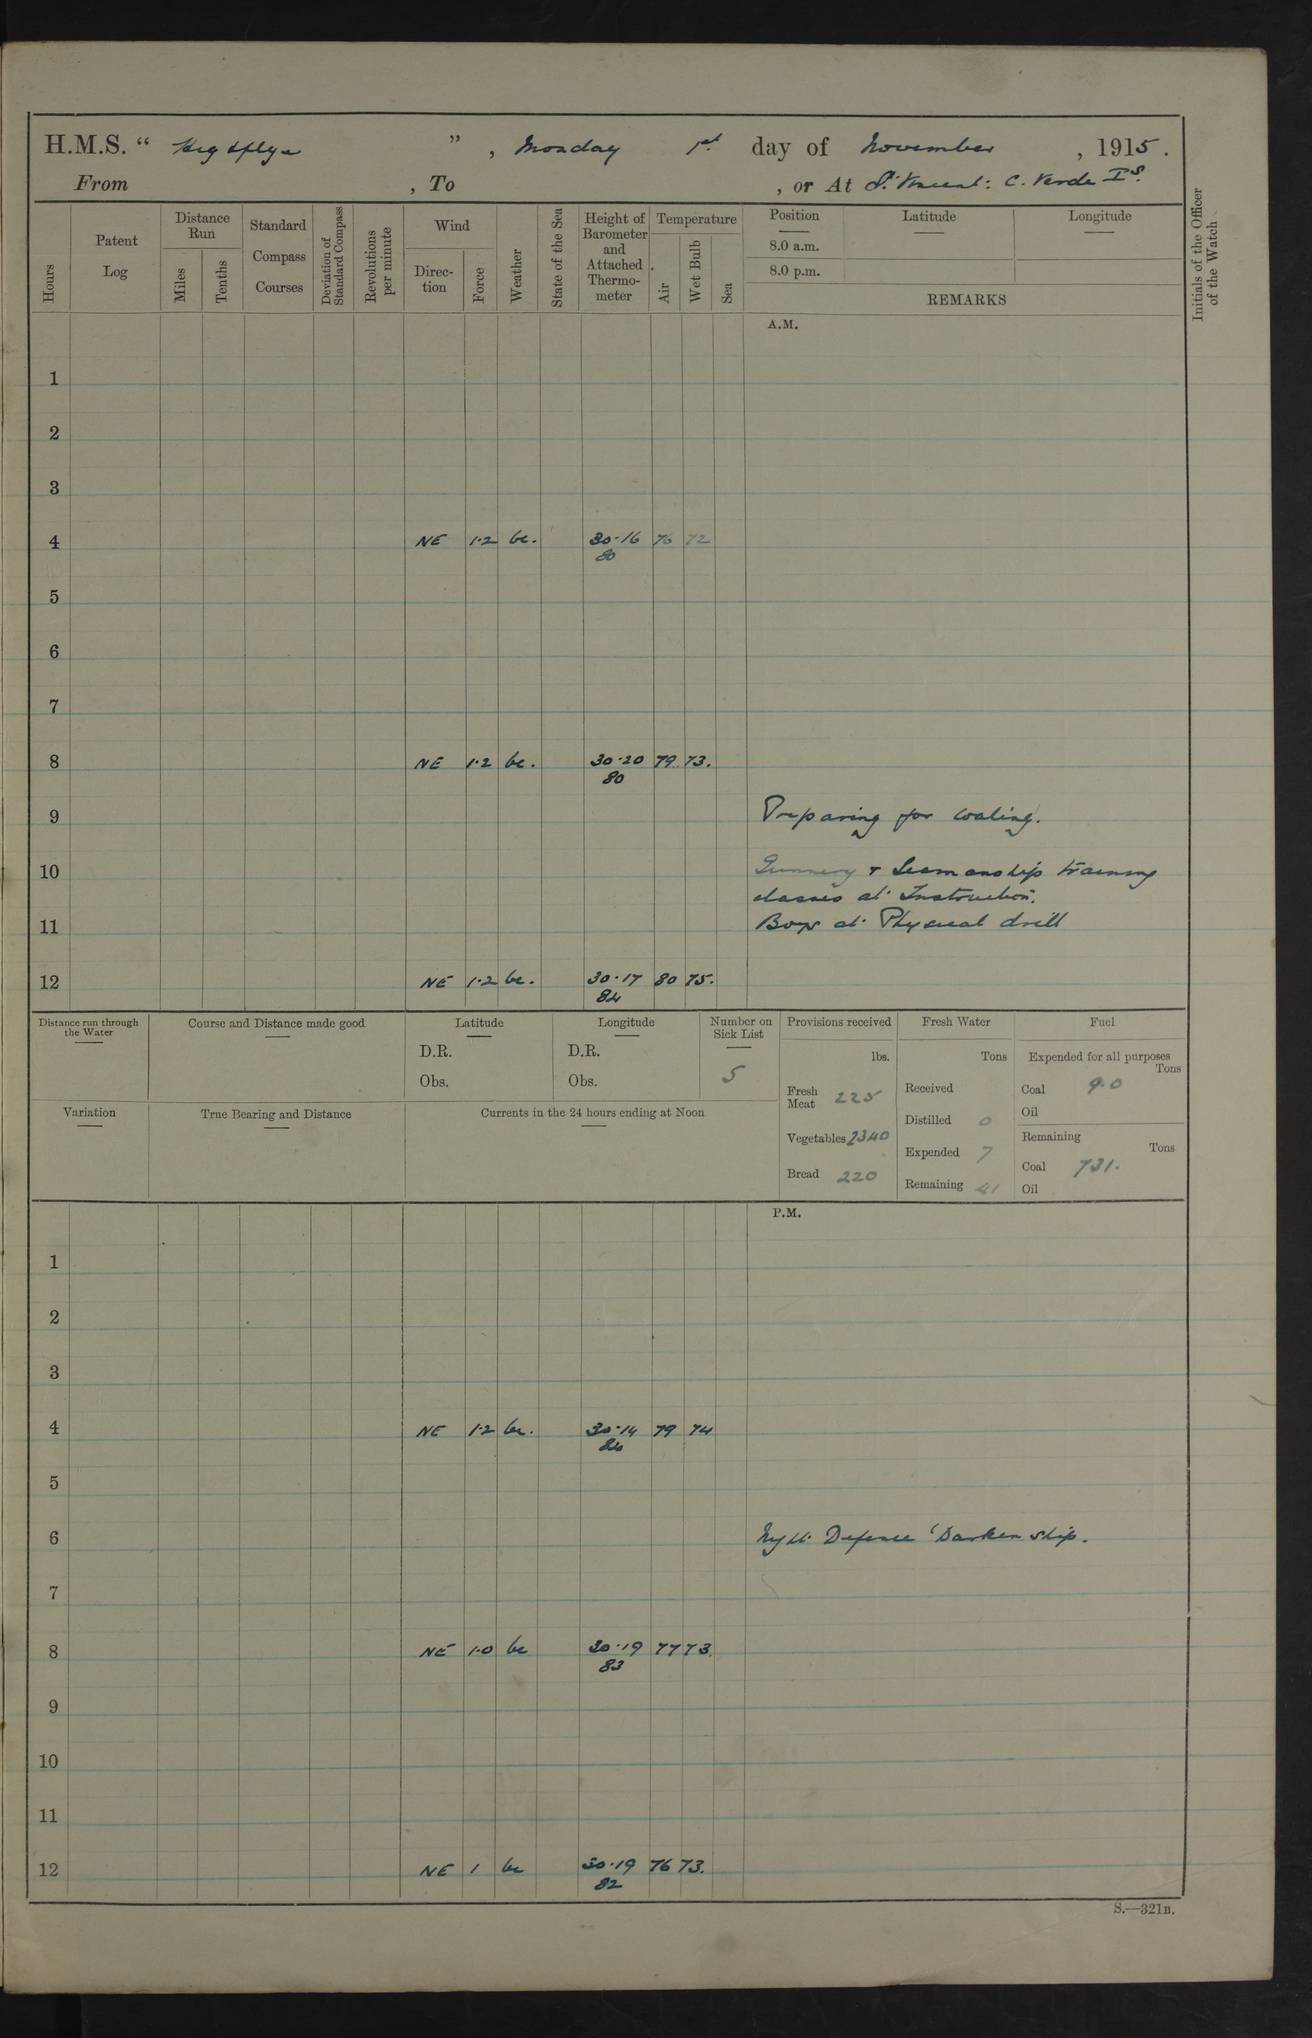 H.M.S. “ Highflyer ” , Monday 1st. day of November , 1915.
From , To , or At St. Vincent: C. Verde Is.
Hours
Patent Log
Distance Run
Miles
Tenths
Standard Compass Courses
Deviation of Standard Compass
Revolutions per minute
Wind
Direc-tion
Force
Weather
State of the Sea
Height of Barometer and Attached Thermo-meter
Temperature
Air
Wet Bulb
Sea
Position
Latitude
Longitude
8.0 a.m.
8.0 p.m.
REMARKS
Initials of the Officer of the Watch
A.M.
1
2
3
4 NE 1·2 bc. 30·16 76 72
80
5
6
7
8 NE 1·2 bc. 30·20 79 73.
80
9 Preparing for coaling.
10 Gunnery & Seamanship training
classes at Instruction.
11 Boys at Physical drill
12 NE 1·2 bc. 30·17 80 75.
84
Distance run through the Water
Course and Distance made good
Latitude
D.R.
Obs.
Longitude
D.R.
Obs.
Number on Sick List
5
Provisions received
lbs.
Fresh Meat 225
Vegetables 2340
Bread 220
Fresh Water
Tons
Received
Distilled 0
Expended 7
Remaining 41
Fuel
Expended for all purposes
Tons
Coal 9.0
Oil
Remaining
Tons
Coal 731.
Oil
Variation
True Bearing and Distance
Currents in the 24 hours ending at Noon
P.M.
1
2
3
4 NE 1·2 bc. 30·14 79 74
84
5
6 Night Defence 'Darken ship.
7
8 NE 1·0 bc 30·19 77 73
83
9
10
11
12 NE 1 bc 30·19 76 73.
82
S.—321B.